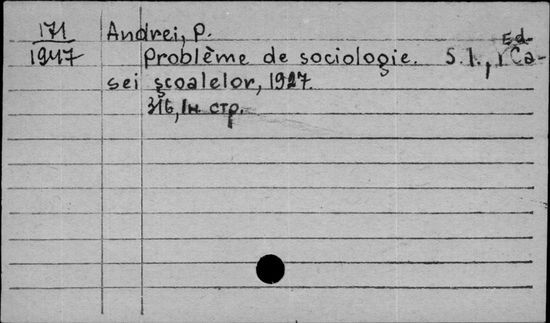 171 Andrei, P.
1947 Problème de sociologie. S. l., Ed. Ca-
sei şcoalelor, 1927.
316, 1н стр.